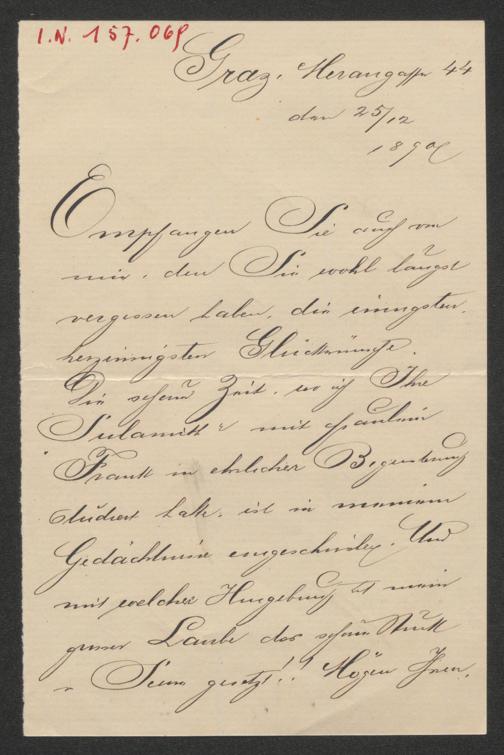 I.N. 157.069
Graz, Merangasse 44
den 25/12
189
Empfangen Sie auch von
mir, den Sie wohl längst
vergessen haben, die innigsten,
herzinnigsten Glückwünsche.
Die schöne Zeit, wo ich Ihre
Sulamith mit Fräulein
Frank in ehrlicher Begeisterung
studiert habe, ist in meinem
Gedächtnisse eingeschrieben. Und
mit welcher Hingebung hat mein
grosser Laube das schöne Stück
in Scene gesetzt!! Mögen Ihnen,